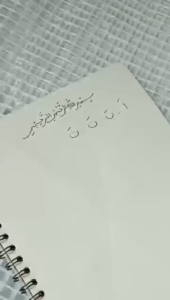 بسم الله الرحمن الرحيم
أ ت ت ت